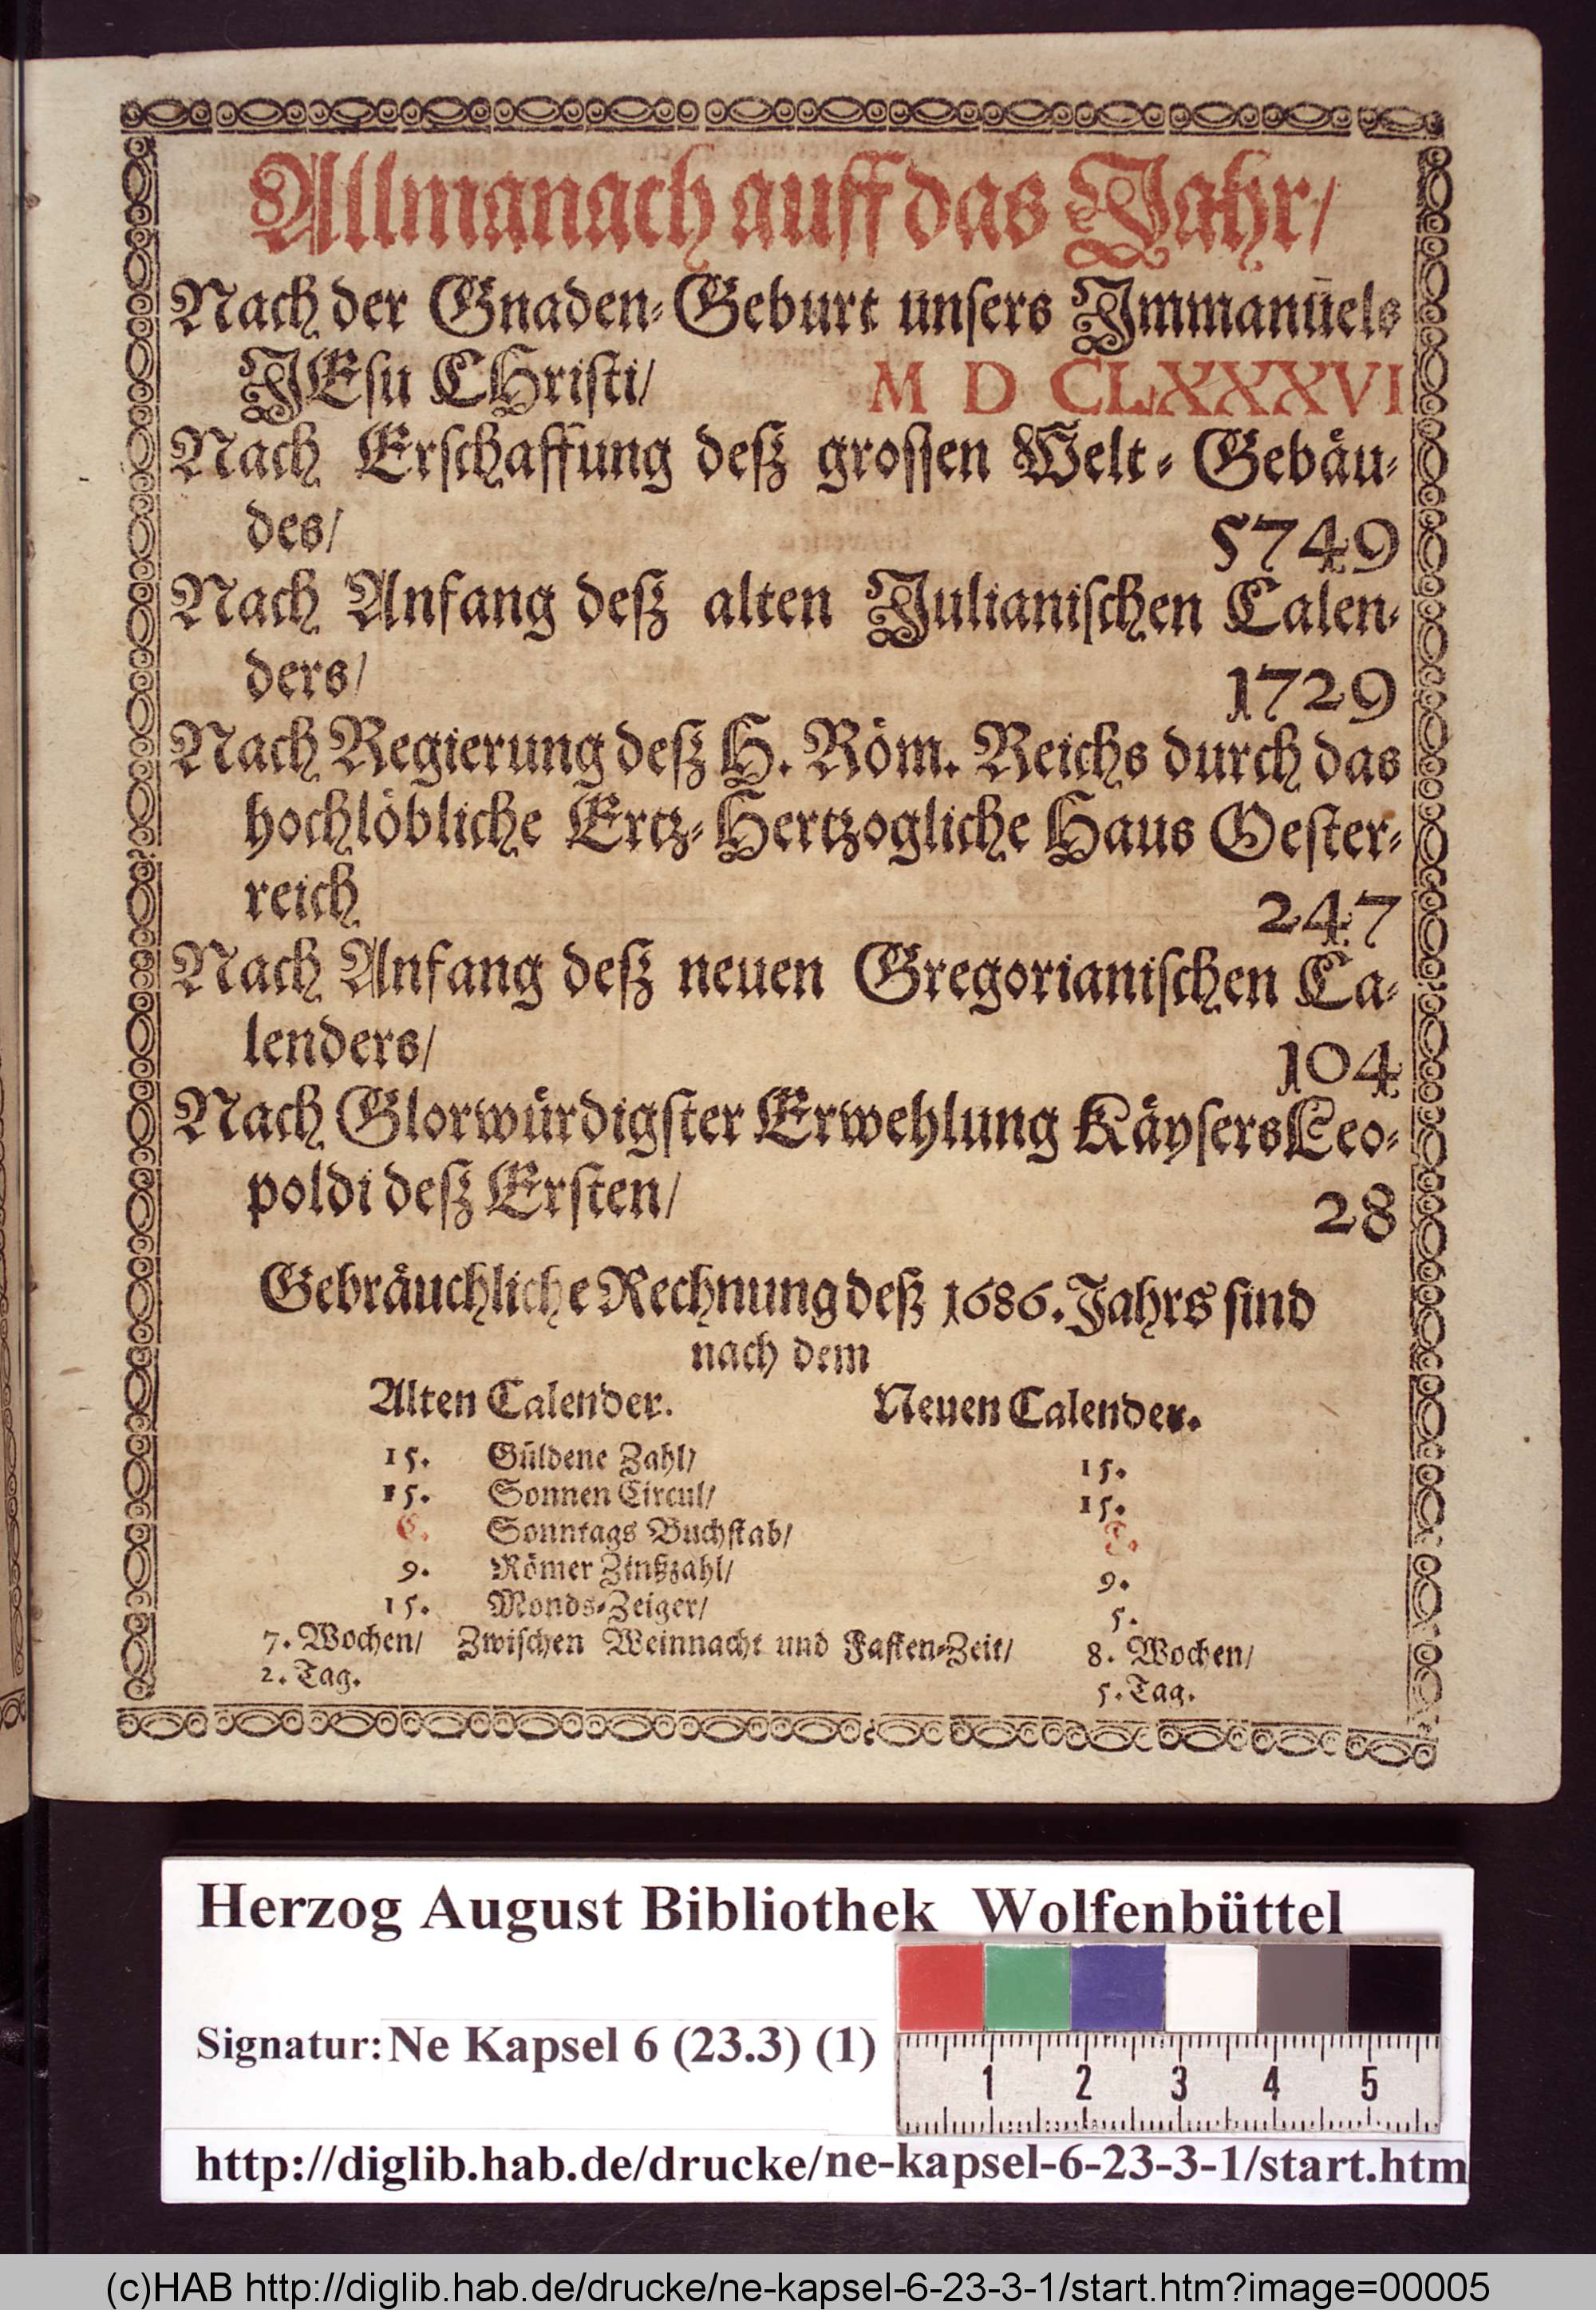 Allmanach auff das Jahr/
Nach der Gnaden-Geburt unsers Immanuels
JEsu CHristi/ M D CLXXXVI
Nach Erschaffung deß grossen Welt-Gebäu-
des/ 5749
Nach Anfang deß alten Julianischen Calen-
ders/ 1729
Nach Regierung deß H. Röm. Reichs durch das
hochlöbliche Ertz-Hertzogliche Haus Oester-
reich 247
Nach Anfang deß neuen Gregorianischen Ca-
lenders/ 104
Nach Glorwürdigster Erwehlung Käysers Leo-
poldi deß Ersten/ 28
Gebräuchliche Rechnung deß 1686. Jahrs sind
nach dem
Alten Calender. Neuen Calender.
15. Güldene Zahl/ 15.
15. Sonnen Circul/ 15.
Sonntags Buchstab/
9. Römer Zinßzahl/ 9.
15. Monds-Zeiger/ 5.
7. Wochen/ Zwischen Weinnacht und Fasten-Zeit/ 8. Wochen/
2. Tag. 5. Tag.
Herzog August Bibliothek Wolfenbüttel
Signatur: Ne Kapsel 6 (23.3) (1)
1 2 3 4 5
http://diglib.hab.de/drucke/ne-kapsel-6-23-3-1/start.htm
(c)HAB http://diglib.hab.de/drucke/ne-kapsel-6-23-3-1/start.htm?image=00005